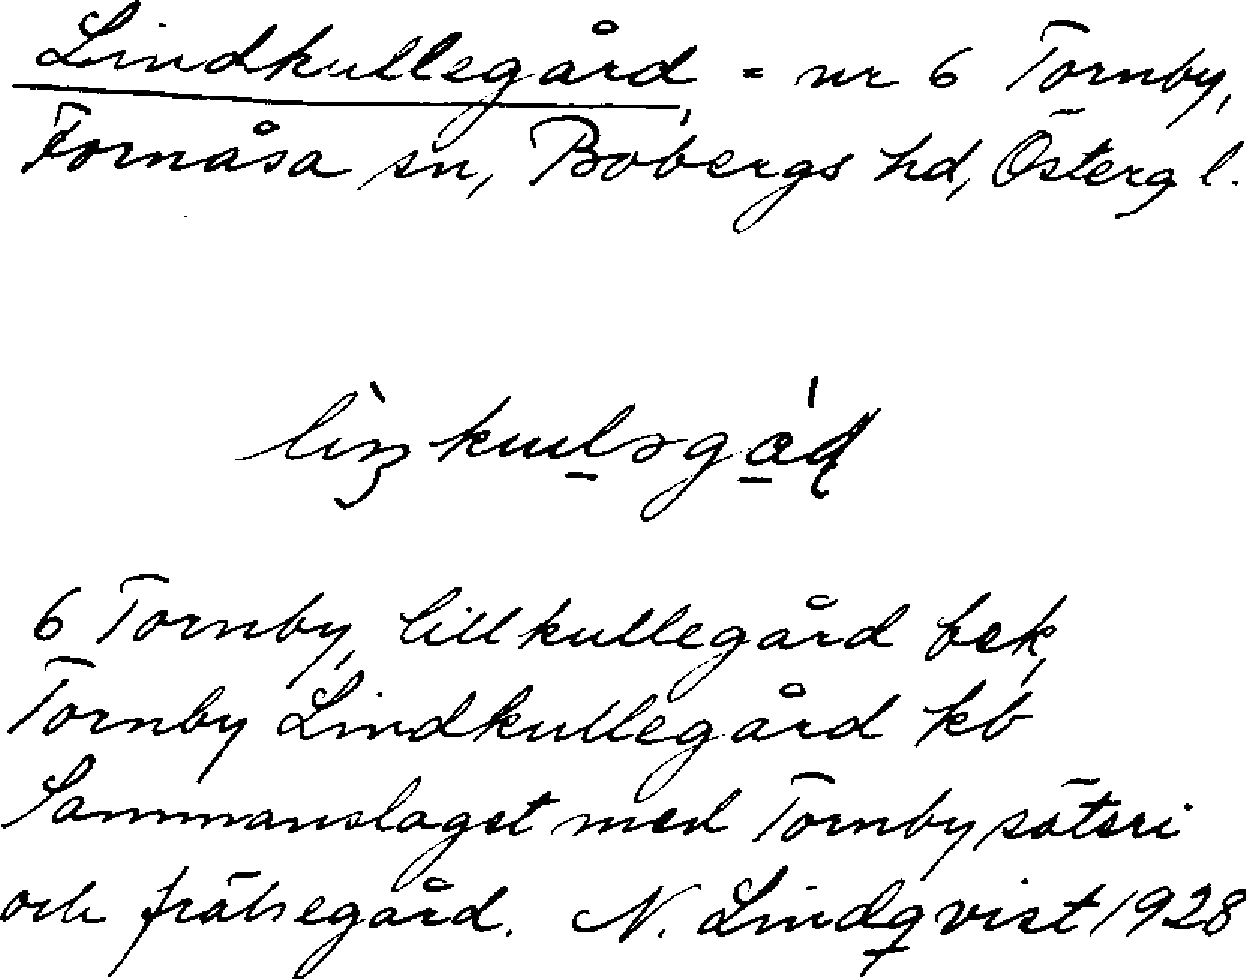 Lindkullegård, = nr 6 Tornby,
Fornåsa sn, Bobergs hd, Österg l.
6 Tornby, lillkullegård bek,
Tornby Lindkullegård kb
Sammanslaget med Tornby säteri
och frälsegård. N. Lindqvist 1928